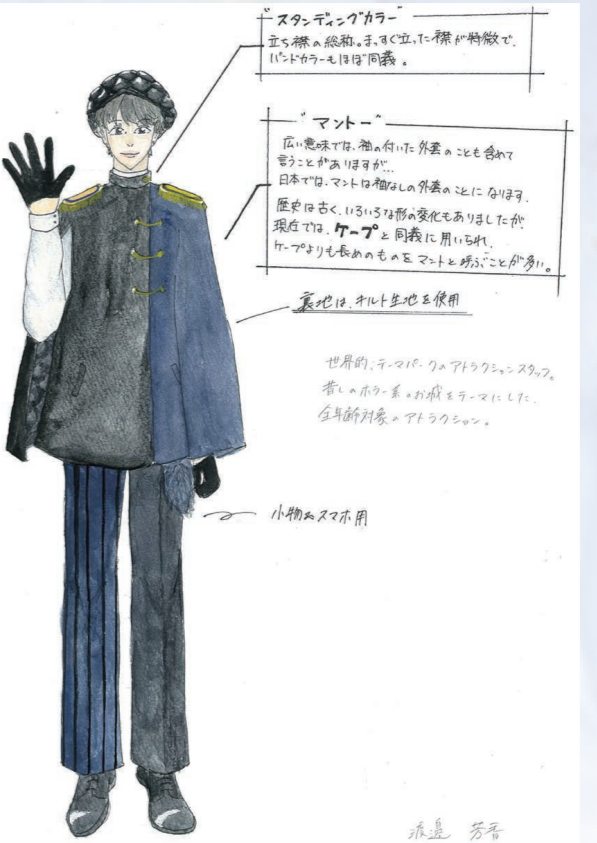 "スタンディングカラー"
立ち襟の総称。まっすぐ立った襟が特徴で、
バンドカラーもほぼ同義。
"マントー"
広い意味では、袖の付いた外套のことも含めて
言うことがありますが…
日本では、マントは袖なしの外套のことになります。
歴史は古く、いろいろな形の変化もありましたが、
現在では、ケープと同義に用いられ、
ケープよりも長めのものをマントと呼ぶことが多い。
裏地は、キルト生地を使用
世界的、テーマパークのアトラクションスタッフ。
昔しのホラー系のお城をテーマにした、
全年齢対象のアトラクション。
小物&スマホ用
渡邉 芳香